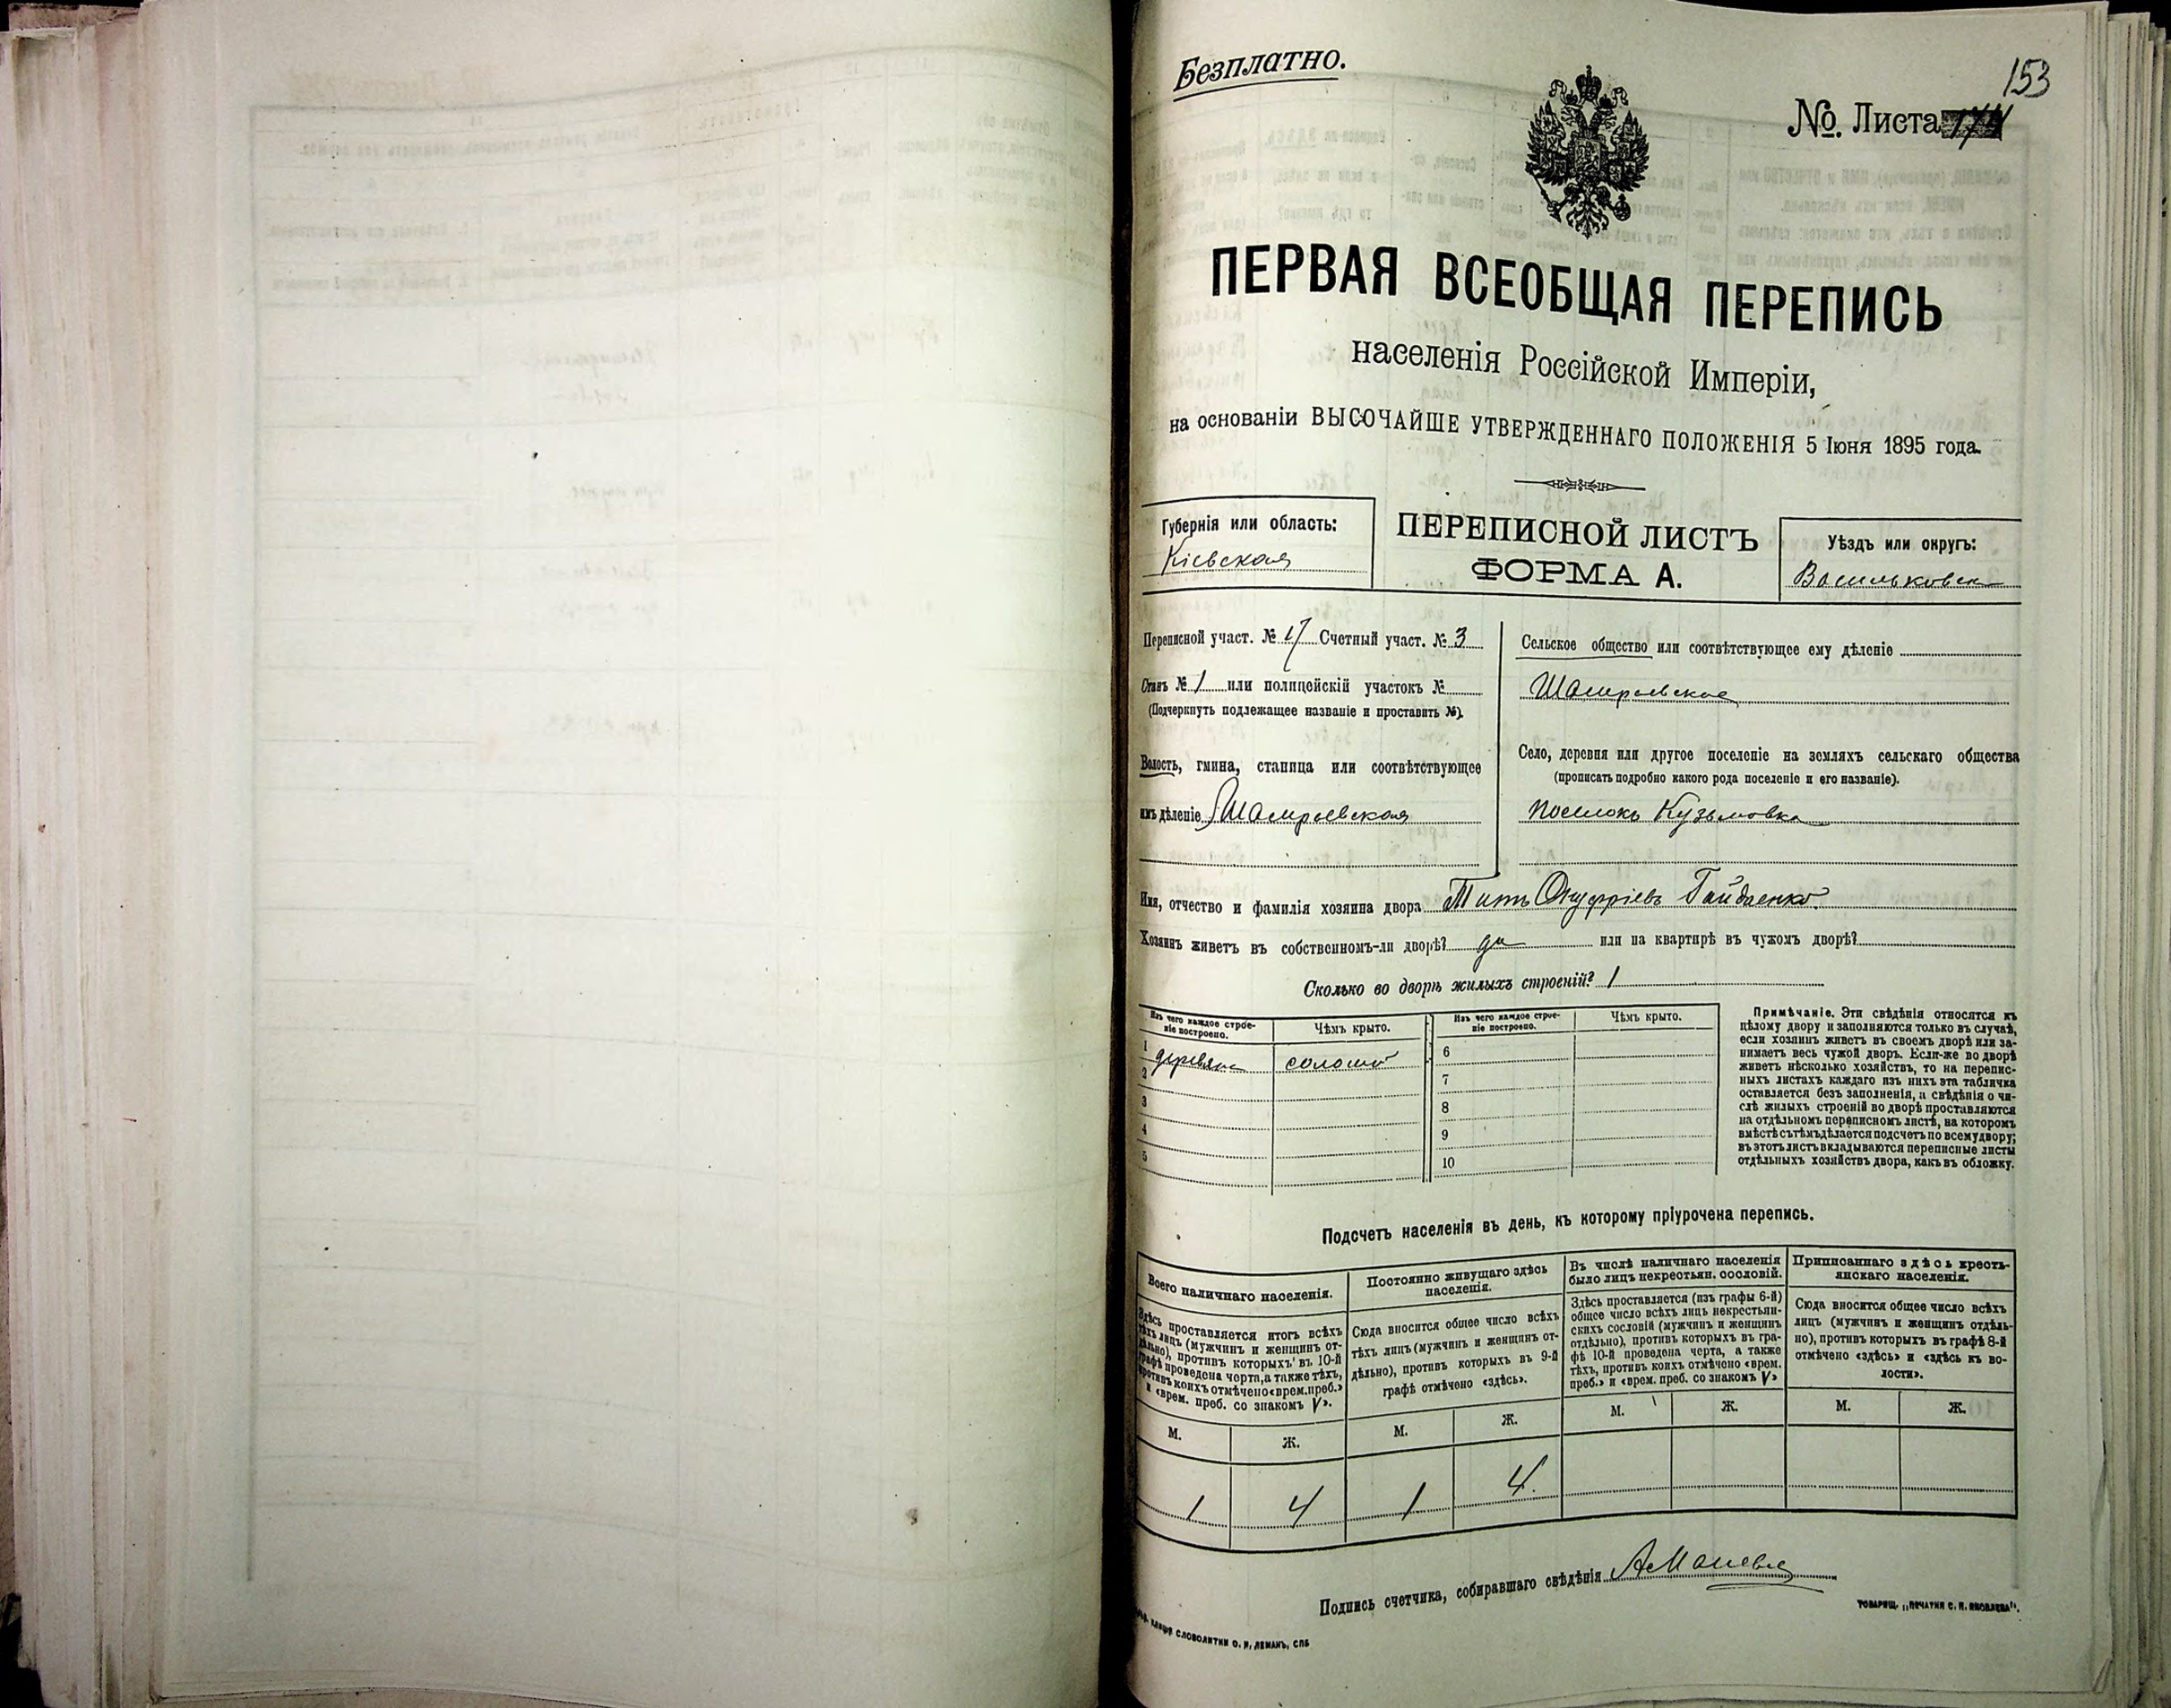 Безплатно.
153
№ Листа
ПЕРВАЯ ВСЕОБЩАЯ ПЕРЕПИСЬ
населенія Россійской Имперіи,
на основаніи ВЫСОЧАЙШЕ УТВЕРЖДЕННАГО ПОЛОЖЕНІЯ 5 Іюня 1895 года.
Губернія или область:
Кіевская
ПЕРЕПИСНОЙ ЛИСТЪ
ФОРМА А.
Уѣздъ или округъ:
Васильковск
Переписной участ. № 17 Счетный участ. № 3
Станъ № 1 или полицейскій участокъ №
(Подчеркнуть подлежащее названіе и проставить №).
Волость, гмина, станица или соотвѣтствующее
имъ дѣленіе Шамраевская
Сельское общество или соотвѣтствующее ему дѣленіе
Шамраевское
Село, деревня или другое поселеніе на земляхъ сельскаго общества
(прописать подробно какого рода поселеніе и его названіе).
поселокъ Кузьмовка
Имя, отчество и фамилія хозяина двора Титъ Онуфріевъ Гайдаенко
Хозяинъ живетъ въ собственномъ-ли дворѣ? да или на квартирѣ въ чужомъ дворѣ?
Сколько во дворѣ жилыхъ строеній? 1
Изъ чего каждое строе-
ніе построено.
Чѣмъ крыто.
1 деревян соломо
2
3
4
5
Изъ чего каждое строе-
ніе построено.
Чѣмъ крыто.
6
7
8
9
10
Примѣчаніе. Эти свѣдѣнія относятся къ
цѣлому двору и заполняются только въ случаѣ,
если хозяинъ живетъ въ своемъ дворѣ или за-
нимаетъ весь чужой дворъ. Если-же во дворѣ
живетъ нѣсколько хозяйствъ, то на перепис-
ныхъ листахъ каждаго изъ нихъ эта табличка
оставляется безъ заполненія, а свѣдѣнія о чи-
слѣ жилыхъ строеній во дворѣ проставляются
на отдѣльномъ переписномъ листѣ, на которомъ
вмѣстѣ съ тѣмъ дѣлается подсчетъ по всему двору;
въ этотъ листъ вкладываются переписные листы
отдѣльныхъ хозяйствъ двора, какъ въ обложку.
Подсчетъ населенія въ день, къ которому пріурочена перепись.
Всего наличнаго населенія.
Здѣсь проставляется итогъ всѣхъ
тѣхъ лицъ (мужчинъ и женщинъ от-
дѣльно), противъ которыхъ въ 10-й
графѣ проведена черта, а также тѣхъ,
противъ коихъ отмѣчено «врем. преб.»
и «врем. преб. со знакомъ V».
М. Ж.
1 4
Постоянно живущаго здѣсь
населенія.
Сюда вносится общее число всѣхъ
тѣхъ лицъ (мужчинъ и женщинъ от-
дѣльно), противъ которыхъ въ 9-й
графѣ отмѣчено «здѣсь».
М. Ж.
1 4
Въ числѣ наличнаго населенія
было лицъ некрестьян. сословій.
Здѣсь проставляется (изъ графы 6-й)
общее число всѣхъ лицъ некрестьян-
скихъ сословій (мужчинъ и женщинъ
отдѣльно), противъ которыхъ въ гра-
фѣ 10-й проведена черта, а также
тѣхъ, противъ коихъ отмѣчено «врем.
преб.» и «врем. преб. со знакомъ V»
М. Ж.
Приписаннаго здѣсь кресть-
янскаго населенія.
Сюда вносится общее число всѣхъ
лицъ (мужчинъ и женщинъ отдѣль-
но), противъ которыхъ въ графѣ 8-й
отмѣчено «здѣсь» и «здѣсь къ во-
лости».
М. Ж.
Подпись счетчика, собиравшаго свѣдѣнія
СЛОВОЛИТНИ О. И. ЛЕМАНЪ, СПБ
ТОВАРИЩ. „ПЕЧАТНЯ С. П. ЯКОВЛЕВА“.